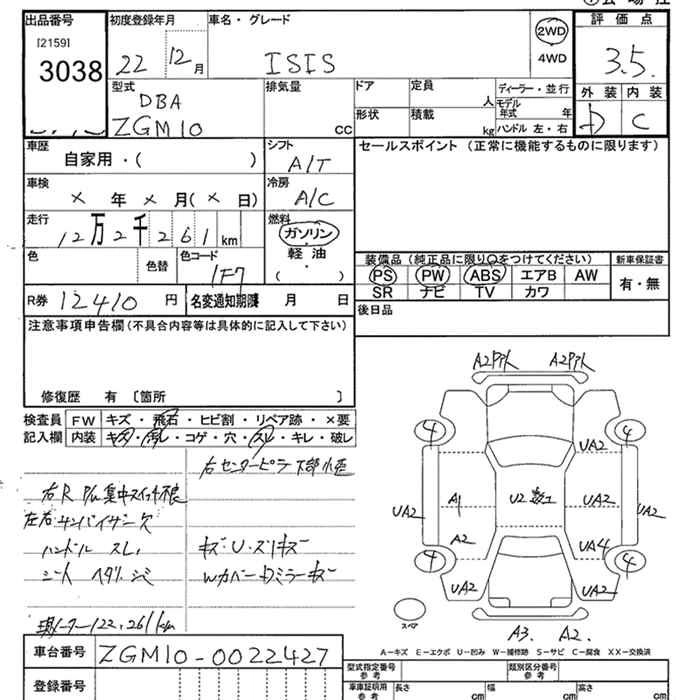 出品番号 初度登録年月 車名・グレード 2WD 評価点
[2159] 22 12月 ISIS 4WD 3.5.
3038 型式 排気量 ドア 定員 ディーラー・並行 外装 内装
DBA 人 モデル年式 年 D C
ZGM10 cc 形状 積載 kg ハンドル 左・右
車歴 シフト セールスポイント (正常に機能するものに限ります)
自家用・( ) A/T
車検 冷房
× 年 × 月 (× 日) A/C
走行 燃料
12万2千261km ガソリン
色 色替 色コード 軽油 装備品 (純正品に限り○をつけてください) 新車保証書
1F7 (・) PS PW ABS エアB AW 有・無
R券 12410 円 名変通知期限 月 日 SR ナビ TV カワ
注意事項申告欄 (不具合内容等は具体的に記入して下さい) 後日品
修復歴 有 〔箇所 〕
検査員 FW キズ・飛石・ヒビ割・リペア跡・×要
記入欄 内装 キズ・汚レ・コゲ・穴・スレ・キレ・破レ
右センターピラ下部小歪
右R P/W 集中スイッチ不良
左右サンバイザー欠
ハンドル スレ キズ・U・スリキズ
シート ヘタリ・シミ Wカバー・Dミラーキズ
現メーター122,261km
A2 A2
4 4
UA2
UA2 A1 U2 数1 UA2 UA2
A2 UA4
4 4
UA2 UA2
スペア
A3. A2.
A-キズ E-エクボ U-凹み W-補修跡 S-サビ C-腐食 XX-交換済
車台番号 ZGM10-0022427
登録番号
型式指定番号 参考 類別区分番号 参考
車庫証明用 参考 長さ cm 幅 cm 高さ cm